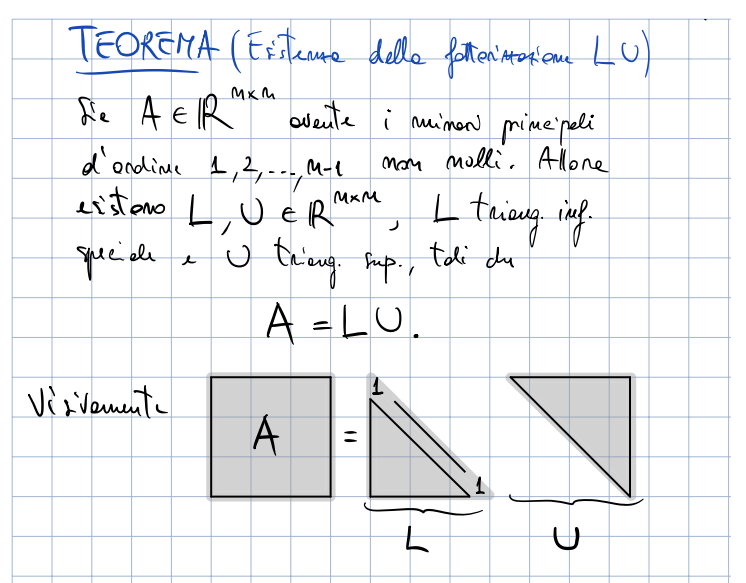 TEOREMA (Esistenza della fattorizzazione LU)
Sia A ∈ ℝ^{n×n} avente i minori principali
d'ordine 1, 2, ..., n-1 non nulli. Allora
esistono L, U ∈ ℝ^{n×n}, L triang. inf.
speciale e U triang. sup., tali che
A = LU.
Visivamente
A = 1 1
L U